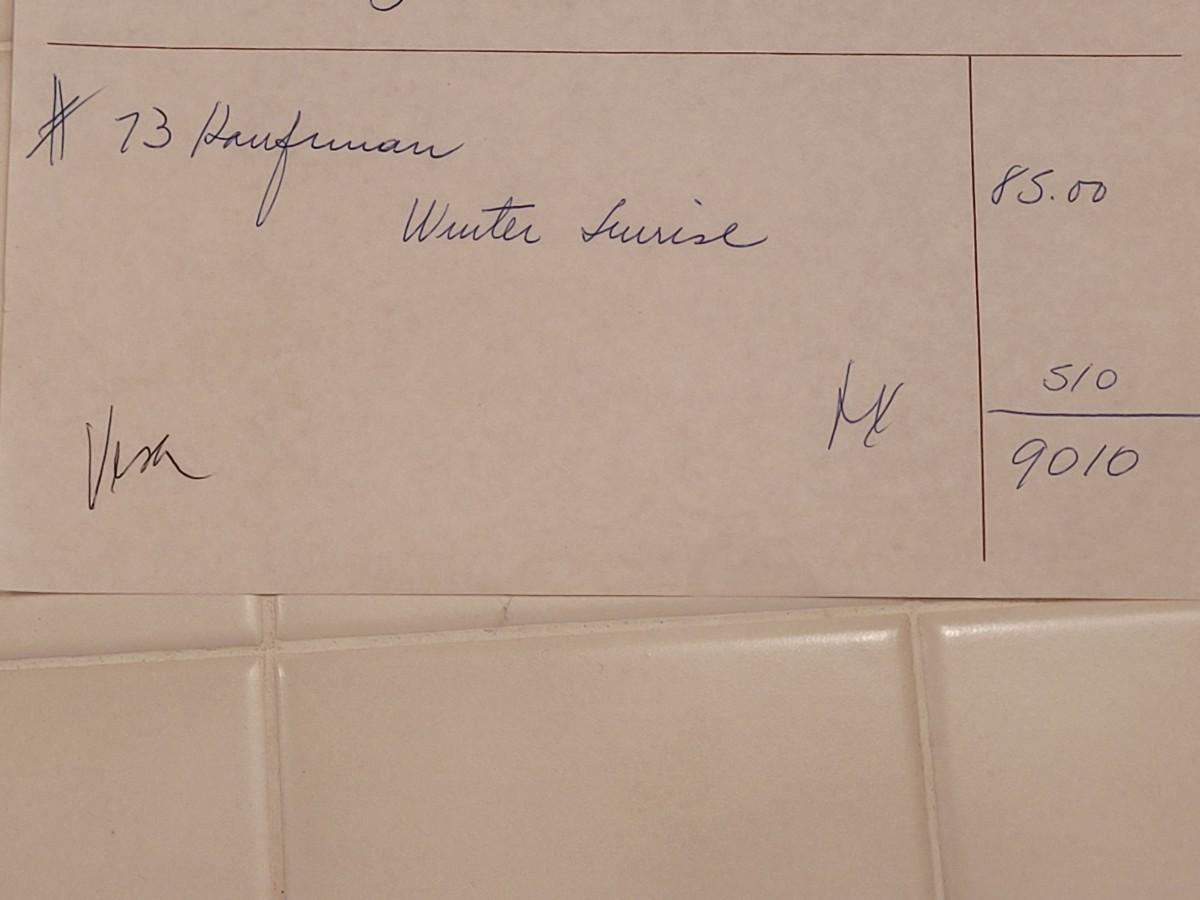 # 73 Kaufman
85.00
Winter Sunrise
510
Visa
9010